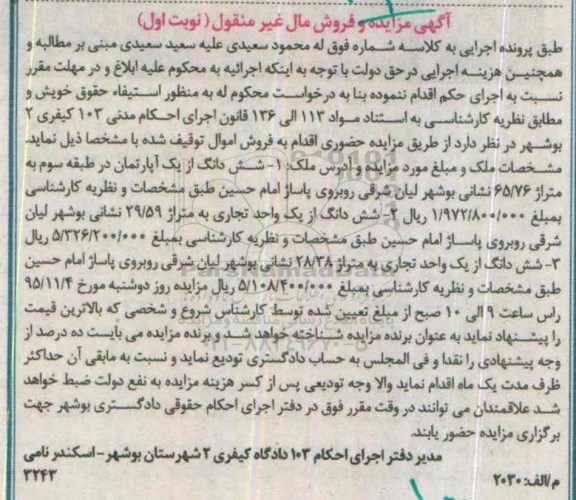 آگهی مزایده و فروش مال غیر منقول ( نوبت اول)
طبق پرونده اجرایی به کلاسه شماره فوق له محمود سعیدی علیه سعید سعیدی مبنی بر مطالبه و
همچنین هزینه اجرایی درحق دولت با توجه به اینکه اجرائیه به محکوم علیه ابلاغ و در مهلت مقرر
نسبت به اجرای حکم اقدام ننموده بنا به درخواست محکوم له به منظور استیفاء حقوق خویش و
مطابق نظریه کارشناسی به استناد مواد ۱۱۳ الی ۱۳۶ قانون اجرای احکام مدنی ۱۰۳ کیفری ۲
بوشهر در نظر دارد از طریق مزایده حضوری اقدام به فروش اموال توقیف شده با مشخصا ذیل نماید.
مشخصات ملک و مبلغ مورد مزایده و آدرس ملک: ۱- شش دانگ از یک آپارتمان در طبقه سوم به
متراژ ۶۵/۷۶ نشانی بوشهر لیان شرقی روبروی پاساژ امام حسین طبق مشخصات و نظریه کارشناسی
بمبلغ ۱/۹۷۲/۸۰۰/۰۰۰ ریال ۲- شش دانگ از یک واحد تجاری به متراژ ۲۹/۵۹ نشانی بوشهر لیان
شرقی روبروی پاساژ امام حسین طبق مشخصات و نظریه کارشناسی بمبلغ ۵/۳۲۶/۲۰۰/۰۰۰ ریال
۳- شش دانگ از یک واحد تجاری به متراژ ۲۸/۳۸ نشانی بوشهر لیان شرقی روبروی پاساژ امام حسین
طبق مشخصات و نظریه کارشناسی بمبلغ ۵/۱۰۸/۴۰۰/۰۰۰ ریال مزایده روز دوشنبه مورخ ۹۵/۱۱/۴
راس ساعت ۹ الی ۱۰ صبح از مبلغ تعیین شده توسط کارشناس شروع و شخصی که بالاترین قیمت
را پیشنهاد نماید به عنوان برنده مزایده شناخته خواهد شد و برنده مزایده می بایست ده درصد از
وجه پیشنهادی را نقدا و فی المجلس به حساب دادگستری تودیع نماید و نسبت به مابقی آن حداکثر
ظرف مدت یک ماه اقدام نماید والا وجه تودیعی پس از کسر هزینه مزایده به نفع دولت ضبط خواهد
شد علاقمندان می توانند در وقت مقرر فوق در دفتر اجرای احکام حقوقی دادگستری بوشهر جهت
برگزاری مزایده حضور یابند.
مدیر دفتر اجرای احکام ۱۰۳ دادگاه کیفری ۲ شهرستان بوشهر- اسکندر نامی
م/الف: ۲۰۳۰
۳۲۴۳